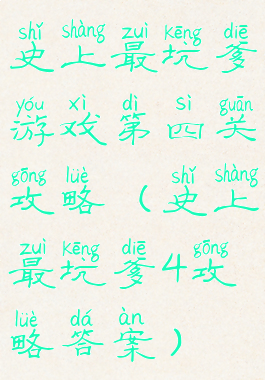 shǐ shàng zuì kēng diē
史上最坑爹
yóu xì dì sì guān
游戏第四关
gōng lüè shǐ shàng
攻略（史上
zuì kēng diē gōng
最坑爹4攻
lüè dá àn
略答案）